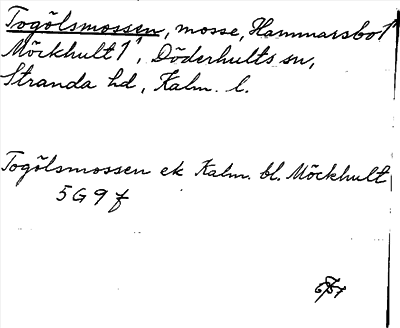 Togölsmossen, mosse, Hammarsbo 1,
Möckhult 1, Döderhults sn,
Stranda hd, Kalm. l.
Togölsmossen ek Kalm. bl. Möckhult
5 G 9 f